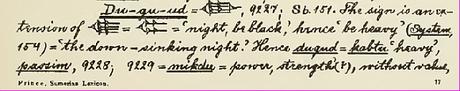 Du-gu-ud = 9227; Sb. 151. The sign is an ex-
tension of = = 'night, be black,' hence 'be heavy' (System,
154) = 'the down-sinking night.' Hence dugud = kabtu 'heavy',
passim, 9228; 9229 = mikdu = power, strength(?), without value,
Prince, Sumerian Lexicon. 17